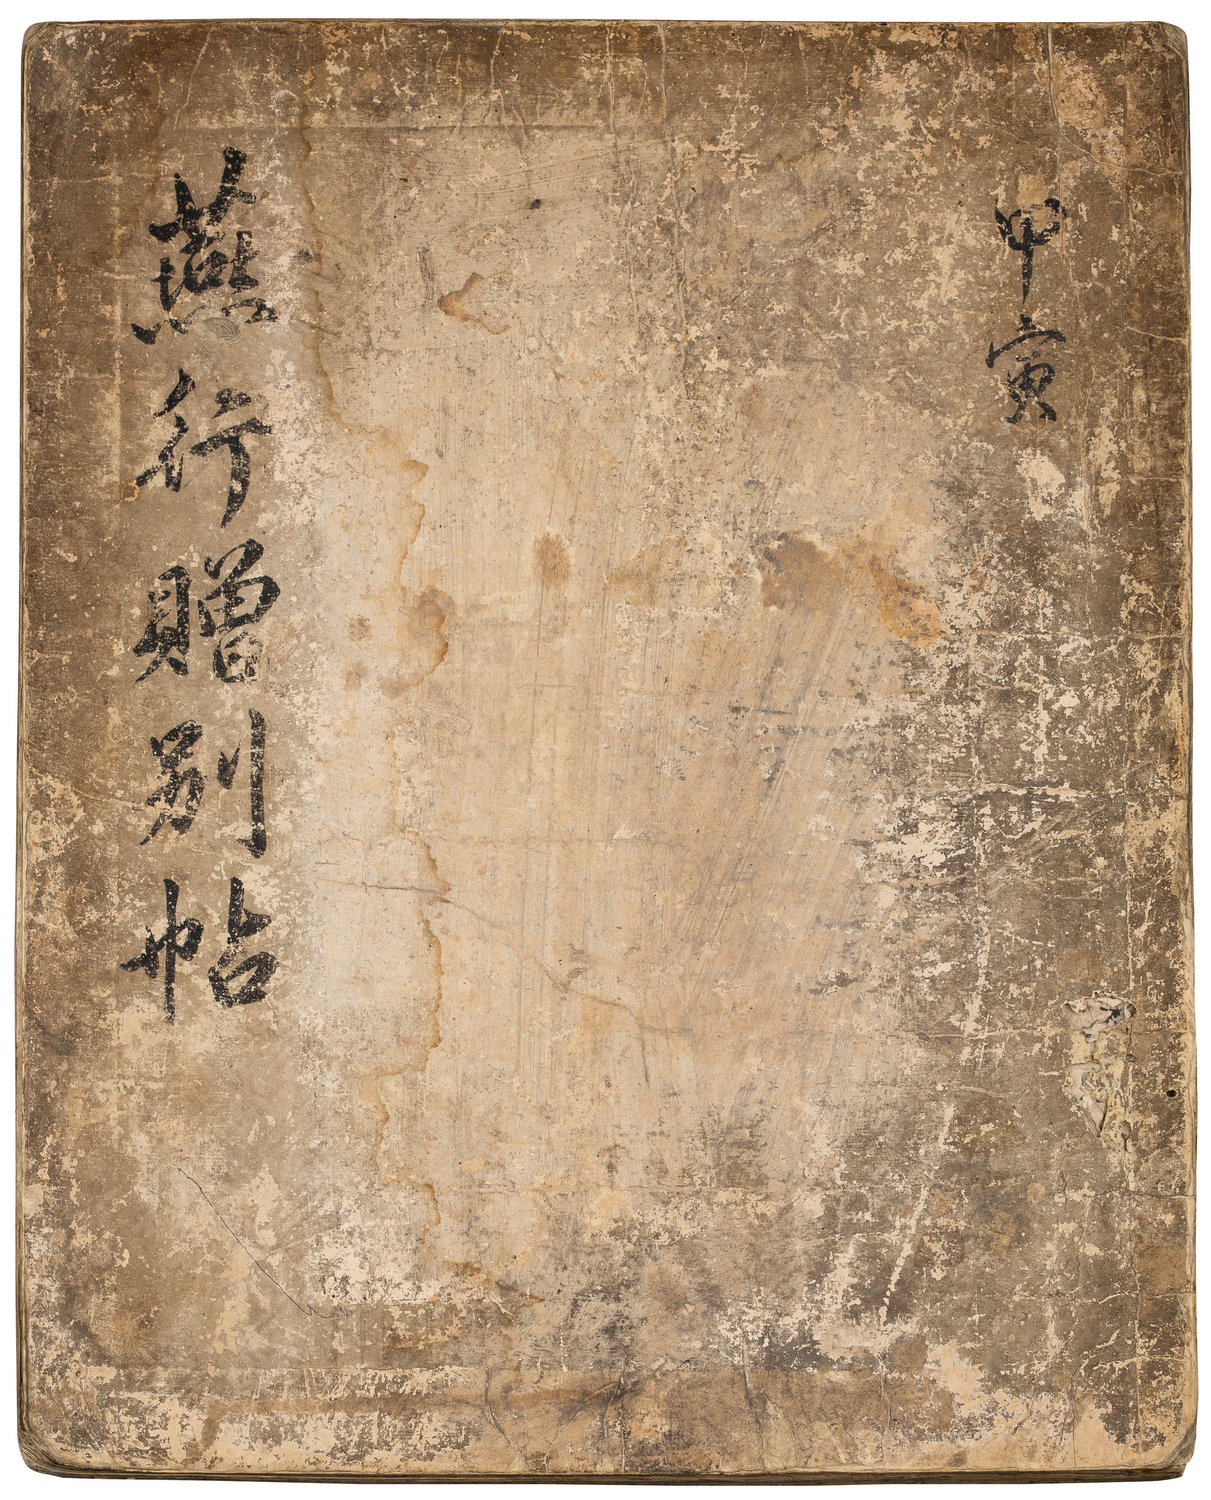 甲寅
燕行贈別帖